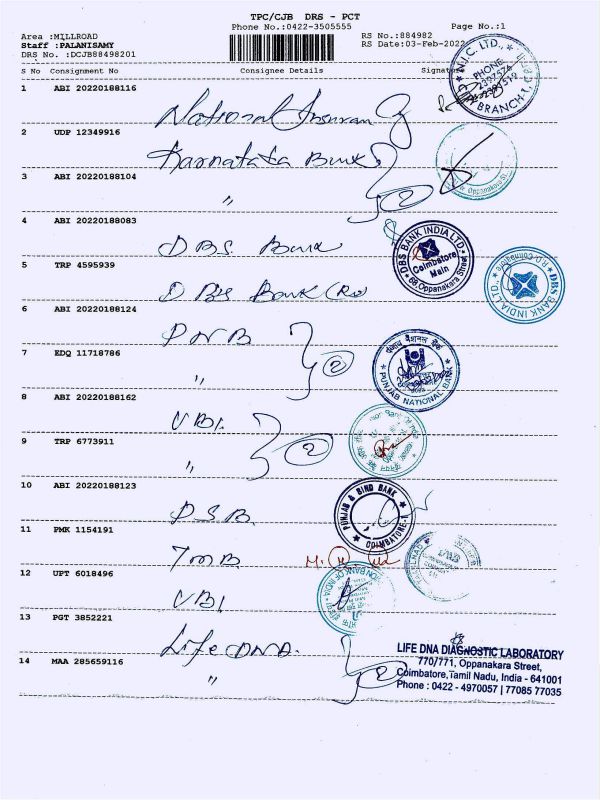 TPC/CJB DRS - PCT
Phone No.:0422-3505555
Page No.:1
Area :MILLROAD
Staff :PALANISAMY
DRS No. :DCJB88498201
RS No.:884982
RS Date:03-Feb-2022
S No Consignment No Consignee Details Signature
1 ABI 20220188116
National Insuran
N.I.C. LTD.,
PHONE
2397574
BRANCH
2 UDP 12349916
Karnataka Bank
3 ABI 20220188104
" 2
Oppanakara St
4 ABI 20220188083
DBS Bank
DBS BANK INDIA LTD
Coimbatore
Main
68, Oppanakara Street
5 TRP 4595939
DBS Bank (Ro)
DBS BANK INDIA LTD
6 ABI 20220188124
PNB
7 EDQ 11718786
" 2
पंजाब नैशनल बैंक
PUNJAB NATIONAL BANK
8 ABI 20220188162
UBI
9 TRP 6773911
" 2
10 ABI 20220188123
PSB
PUNJAB & SIND BANK
COIMBATORE-1
11 PMK 1154191
TMB
12 UPT 6018496
UBI
UNION BANK OF INDIA
13 PGT 3852221
Life DNA
14 MAA 285659116
" 2
LIFE DNA DIAGNOSTIC LABORATORY
770/771, Oppanakara Street,
Coimbatore, Tamil Nadu, India - 641001
Phone : 0422 - 4970057 | 77085 77035